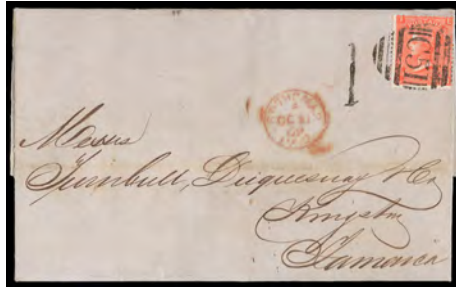 1
C51
ST THOMAS
Messrs
Turnbull, Duquesnay & Co
Kingston
Jamaica